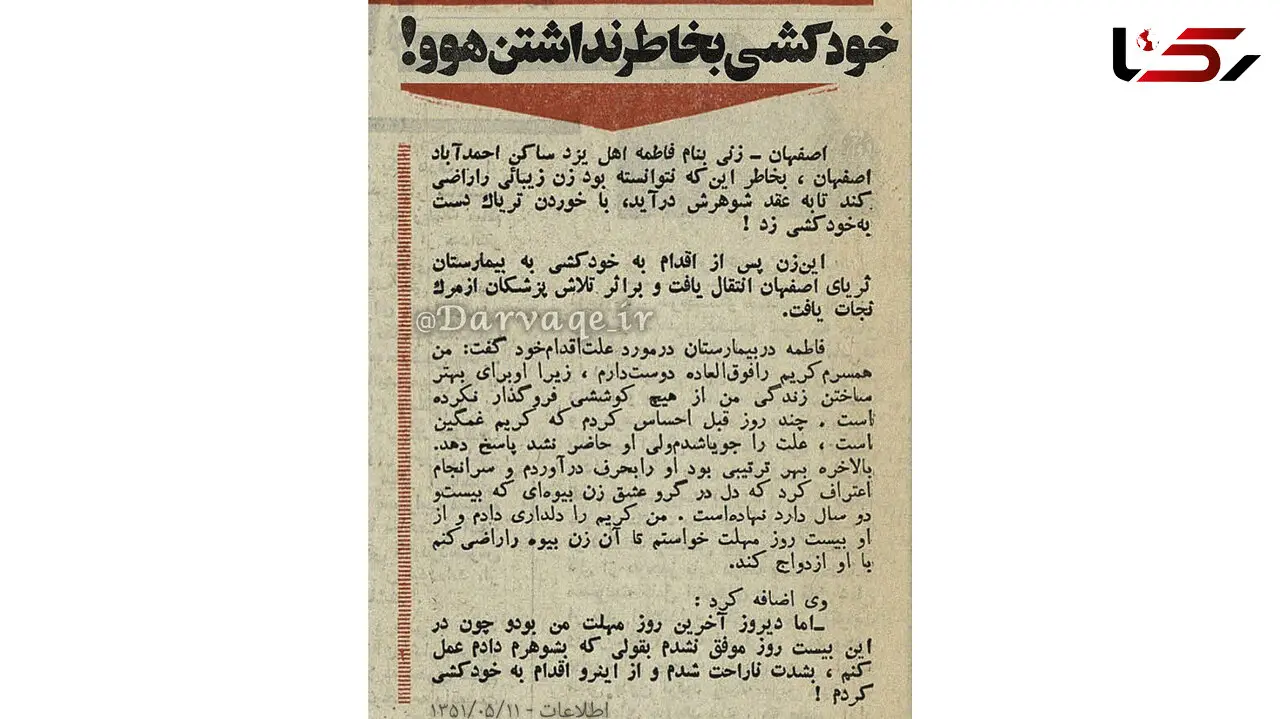 خودکشی بخاطر نداشتن هوو!
رکنا
اصفهان ـ زنی بنام فاطمه اهل یزد ساکن احمدآباد
اصفهان ، بخاطر این‌که نتوانسته بود زن زیبائی راراضی
کند تابه عقد شوهرش درآید، با خوردن تریاك دست
به‌خودکشی زد !
این‌زن پس از اقدام به خودکشی به بیمارستان
ثریای اصفهان انتقال یافت و براثر تلاش پزشکان ازمرك
نجات یافت.
@Darvaqe_ir
فاطمه دربیمارستان درمورد علت‌اقدام‌خود گفت: من
همسرم‌کریم رافوق‌العاده دوست‌دارم ، زیرا اوبرای بهتر
ساختن زندگی من از هیچ کوششی فروگذار نکرده
است . چند روز قبل احساس کردم که کریم غمگین
است ، علت را جویاشدم‌ولی او حاضر نشد پاسخ دهد.
بالاخره بهر ترتیبی بود او رابحرف درآوردم و سرانجام
اعتراف کرد که دل در گرو عشق زن بیوه‌ای که بیست‌و
دو سال دارد نهاده‌است . من کریم را دلداری دادم و از
او بیست روز مهلت خواستم تا آن زن بیوه راراضی‌کنم
با او ازدواج کند.
وی اضافه کرد :
ـاما دیروز آخرین روز مهلت من بودو چون در
این بیست روز موفق نشدم بقولی که بشوهرم دادم عمل
کنم ، بشدت ناراحت شدم و از اینرو اقدام به خودکشی
کردم !
اطلاعات - ۱۳۵۱/۰۵/۱۱